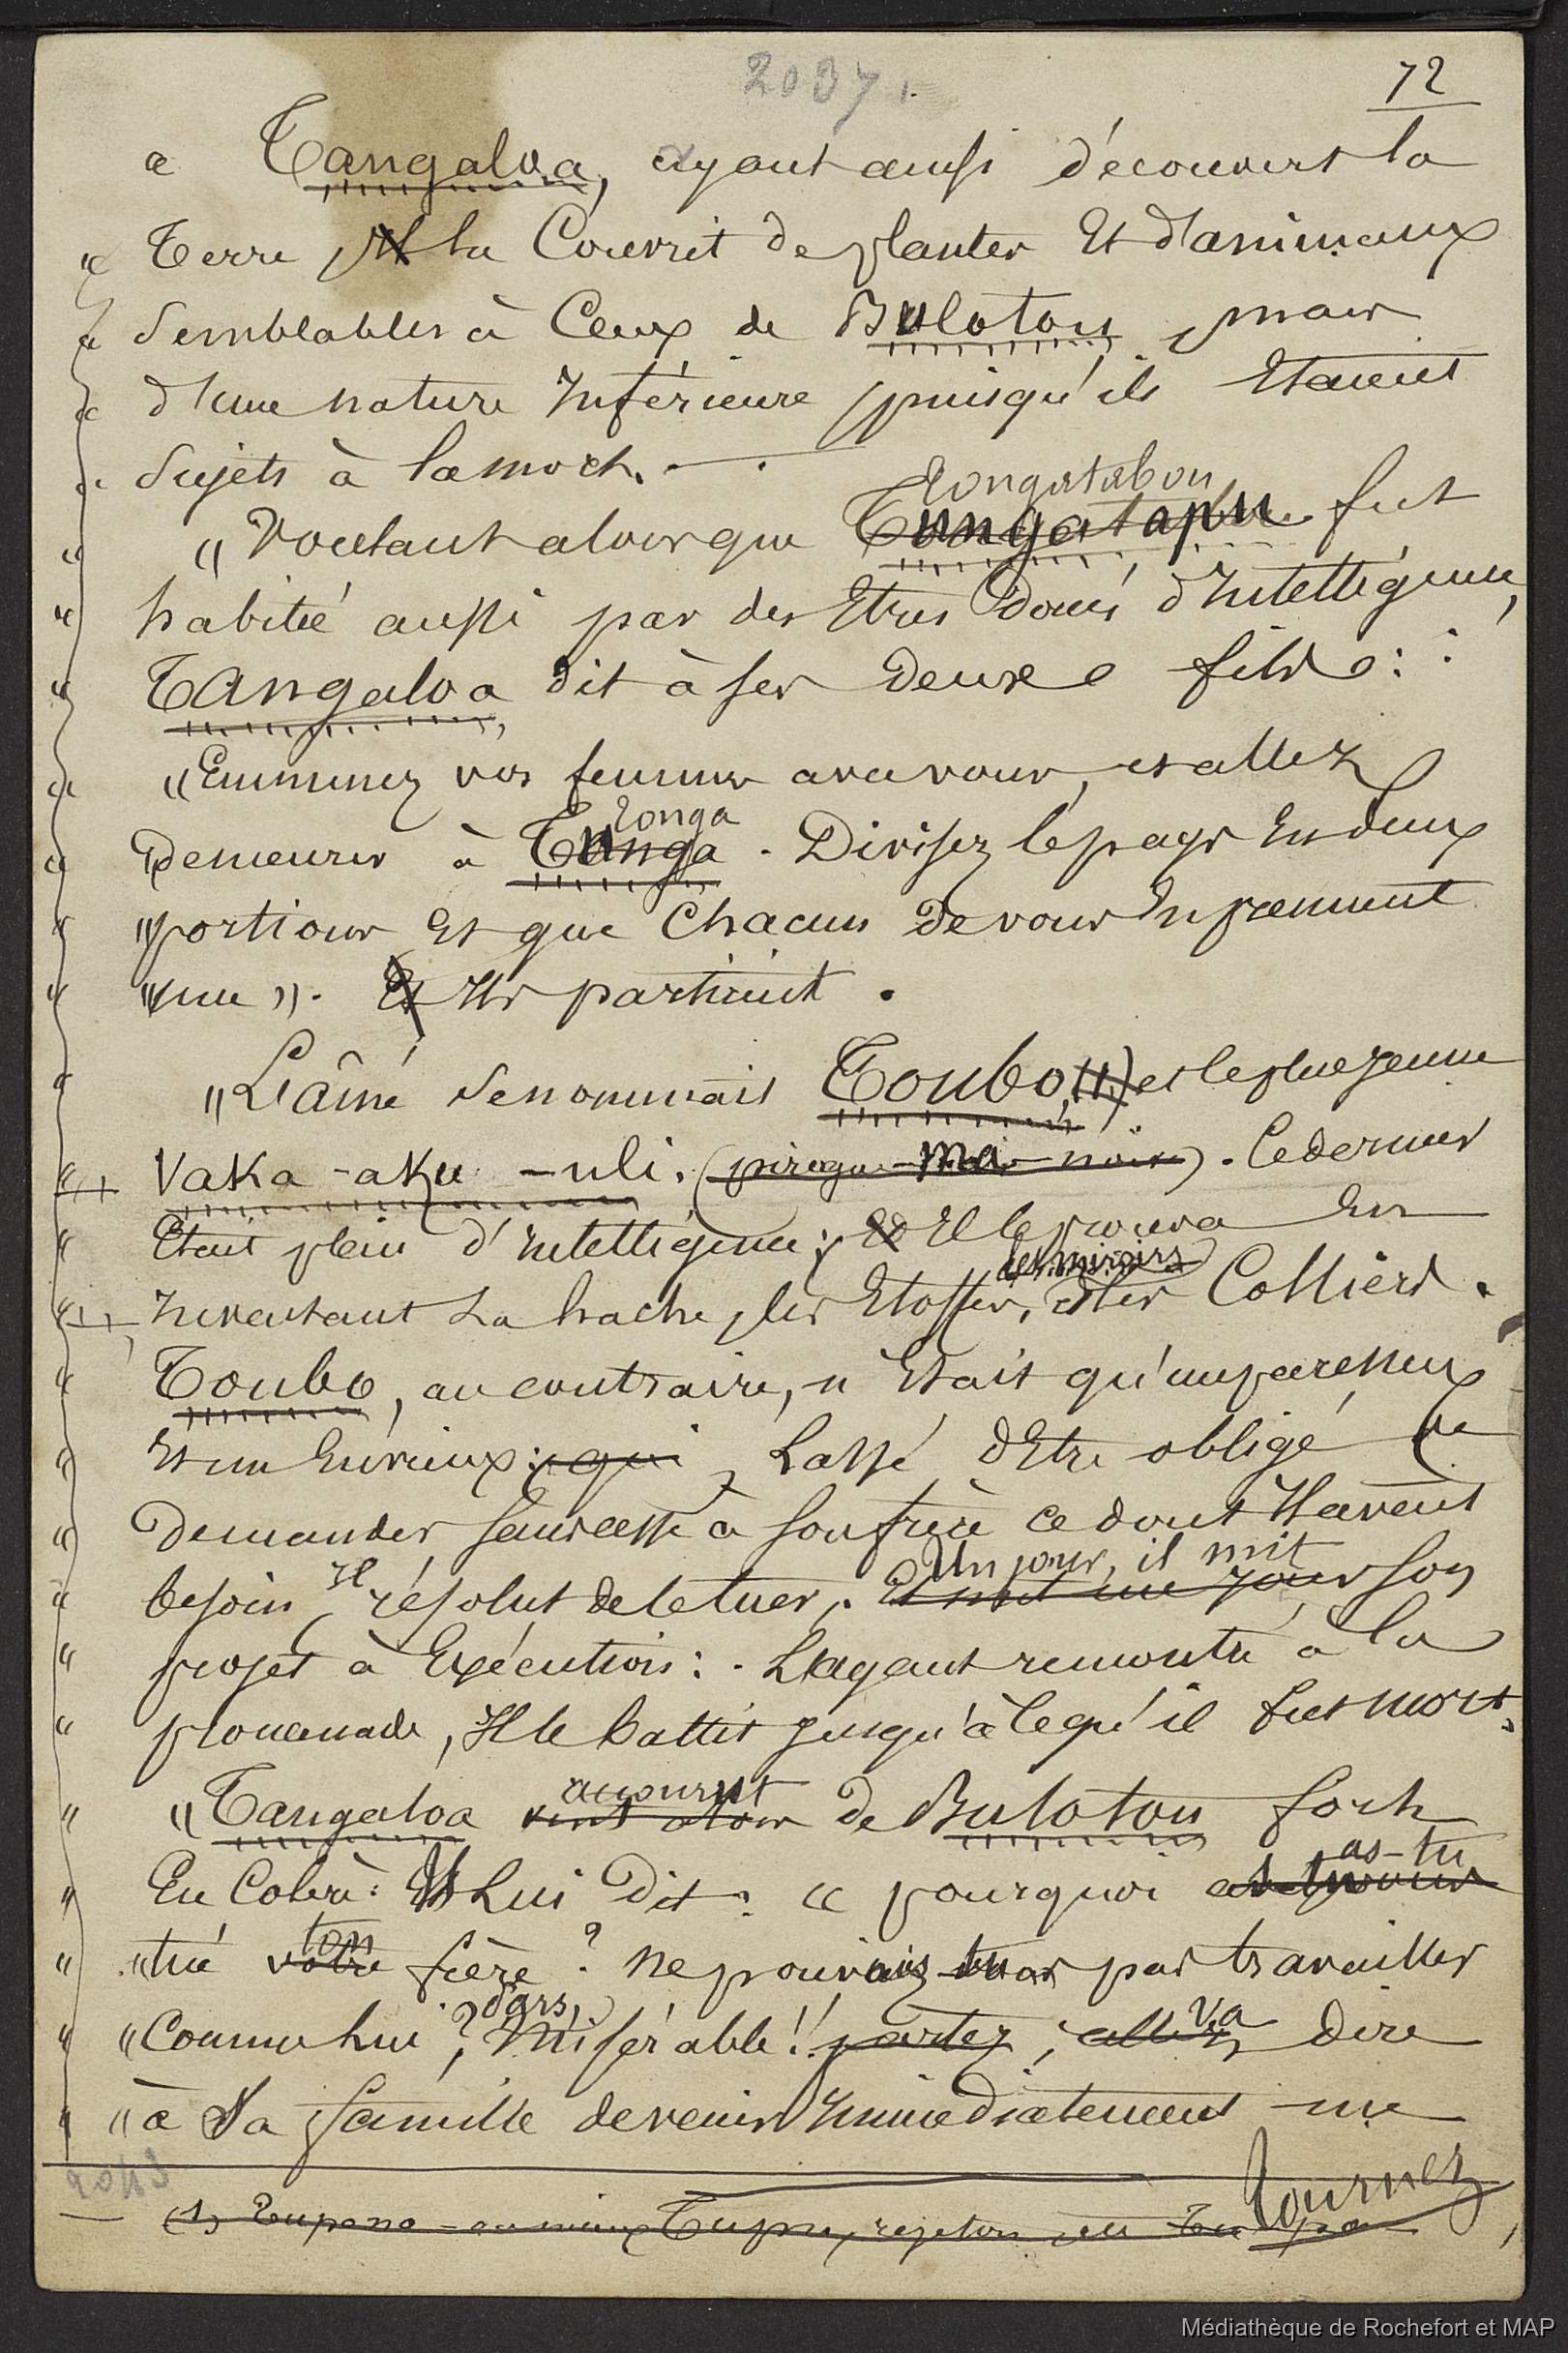 2037.
72
« Tangaloa, ayant ainsi découvert la
« Terre, la Couvrit de plantes Et d'animaux
« Semblables à Ceux de Bulotou, mais
« d'une nature Inférieure, puisqu'ils Etaient
« Sujets à la mort. —
Tongatabou
« "Voulant alors que Tungatapu fut
« habité aussi par des Etres Doués d'Intelligence,
« Tangaloa dit à ses Deux fils :
« "Emmenez vos femmes avec vous, et allez
Tonga
« "Demeurer à Tunga. Divisez le pays En deux
« "portions Et que Chacun de vous En prennent
« "une ». Et Ils partirent.
« "L'aîné Se nommait Toubo, (1) et le plus jeune
« Vaka-aku-uli. (pirogue-ma-noire). Ce dernier
« Etait plein d'Intelligence; Et Il le prouva En
des miroirs
« Inventant La hache, les Etoffes, et les Colliers.
« Toubo, au contraire, n'Etait qu'un paresseux
« Et un Envieux: qui, Lassé d'Etre obligé de
« Demander sans cesse à son frère ce dont Il avait
Il Un jour, il mit
« besoin, résolut de le tuer. Et mit un jour son
« projet à Exécution: L'ayant rencontré à la
« promenade, Il le battit jusqu'à Ce qu'il fut mort.
accourut
« "Tangaloa vint alors de Bulotou fort
as-tu
« En Colère: Et Lui Dit: « pourquoi avez-vous
ton
« "tué votre frère? Ne pouvais-tu pas travailler
Pars, Va
« "Comme lui? Misérable!! partez, allez dire
« "à Sa famille de venir Immédiatement me
Tournez
2043
(1) Tupo ou mieux Tupu, rejeton